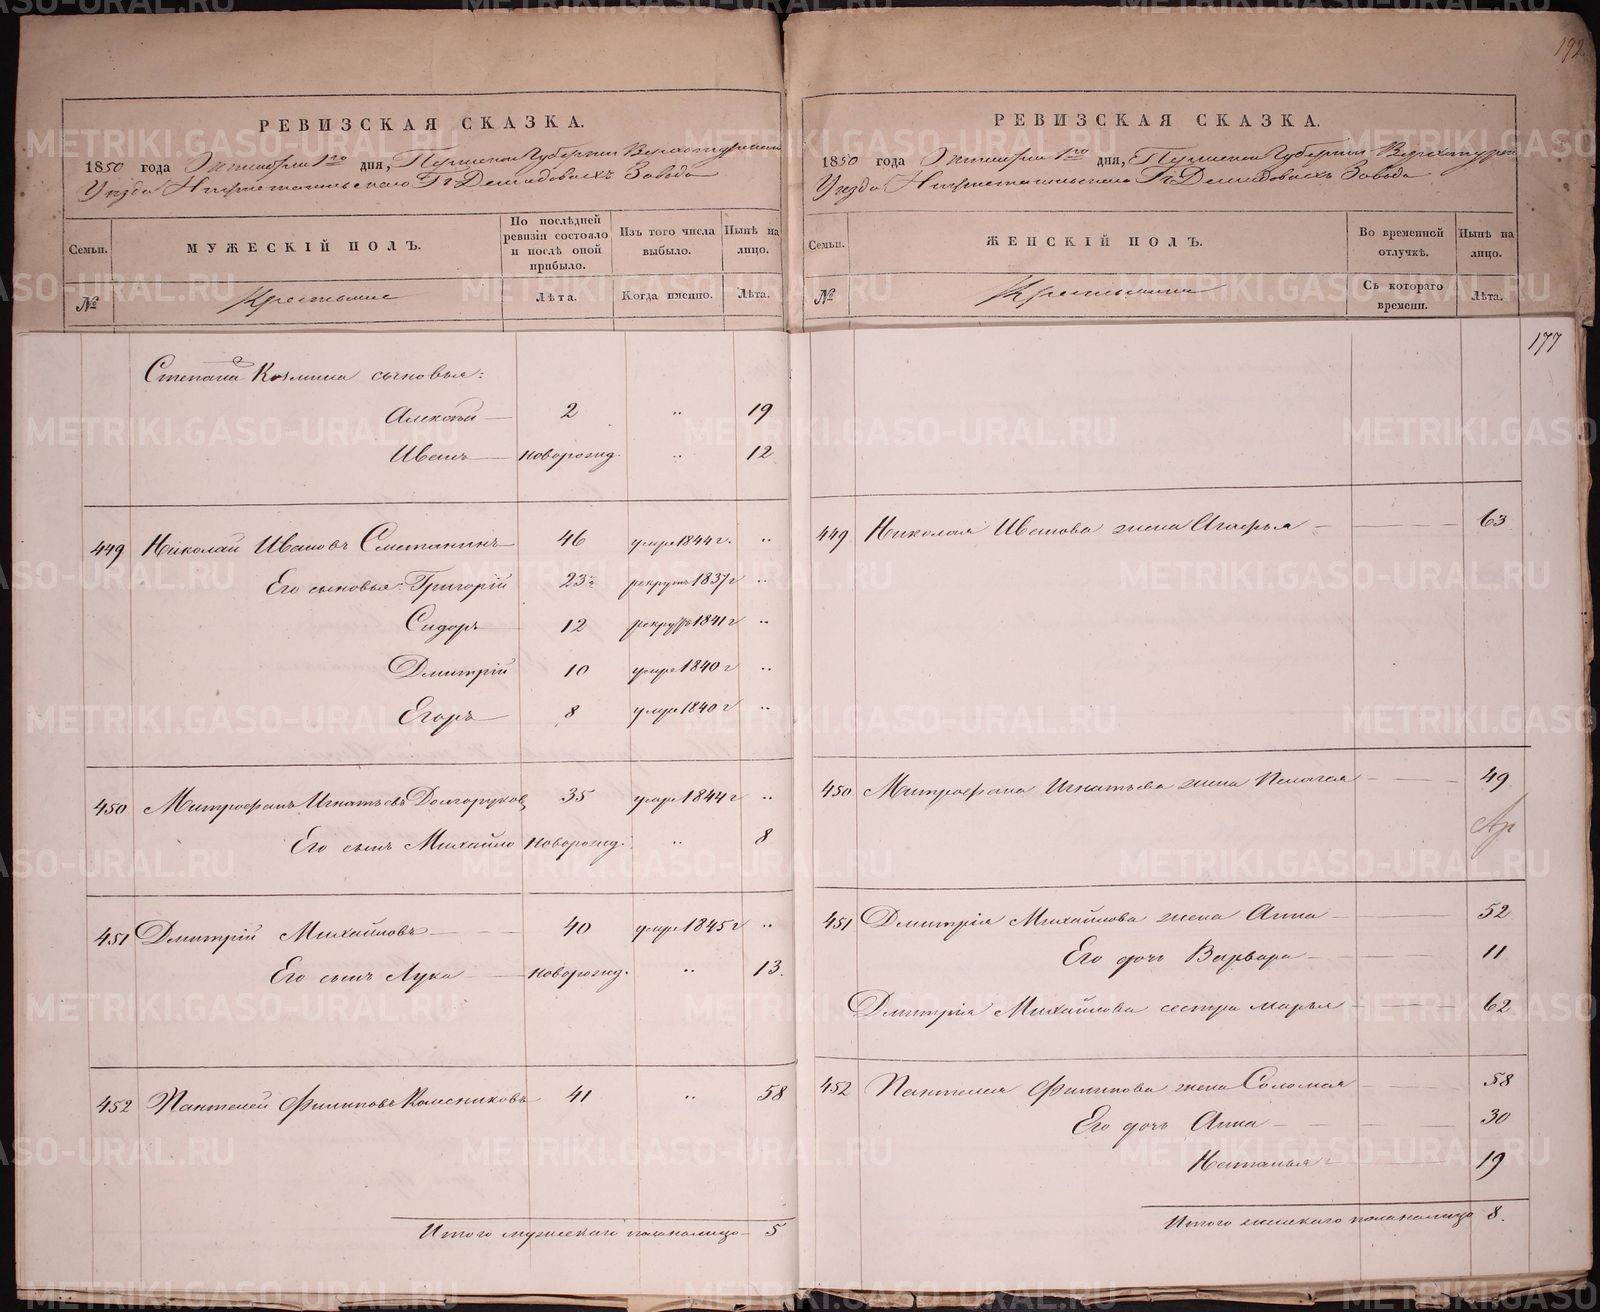 192
РЕВИЗСКАЯ СКАЗКА.
1850 года Октября 1го дня, Пермской Губернии Верхотурскаго
Уезда Нижнетагильскаго Гг. Демидовыхъ Завода
Семьи.
МУЖЕСКІЙ ПОЛЪ.
По послѣдней ревизіи состояло и послѣ оной прибыло.
Изъ того числа выбыло.
Нынѣ на лицо.
№
Крестьяне
Лѣта.
Когда именно.
Лѣта.
Степана Козмина сыновья:
Алексѣй 2 " 19
Иванъ новорожд. " 12
449 Николай Ивановъ Сметанинъ 46 умре 1844 г. "
Его сыновья: Григорій 23 рекрутъ 1837 г "
Сидоръ 12 рекрутъ 1841 г "
Дмитрій 10 умре 1840 г "
Егоръ 8 умре 1840 г "
450 Митрофанъ Игнатьевъ Долгоруковъ 35 умре 1844 г "
Его сынъ Михайло новорожд. " 8
451 Дмитрій Михайловъ 40 умре 1845 г "
Его сынъ Лука новорожд. " 13.
452 Пантелей Филиповъ Колесниковъ 41 " 58
Итого мужескаго пола налицо 5
РЕВИЗСКАЯ СКАЗКА.
1850 года Октября 1го дня, Пермской Губернии Верхотурскаго
Уезда Нижнетагильскаго Гг. Демидовыхъ Завода
Семьи.
ЖЕНСКІЙ ПОЛЪ.
Во временной отлучкѣ.
Нынѣ на лицо.
№
Крестьянки
Съ котораго времени.
Лѣта.
177
449 Николая Иванова жена Агафья 63
450 Митрофана Игнатьева жена Пелагея 49
451 Дмитрія Михайлова жена Анна 52
Его дочь Варвара 11
Дмитрія Михайлова сестра Марья 62
452 Пантелея Филипова жена Соломея 58
Его дочь Анна 30
Наталья 19
Итого женскаго пола налицо 8.
METRIKI.GASO-URAL.RU